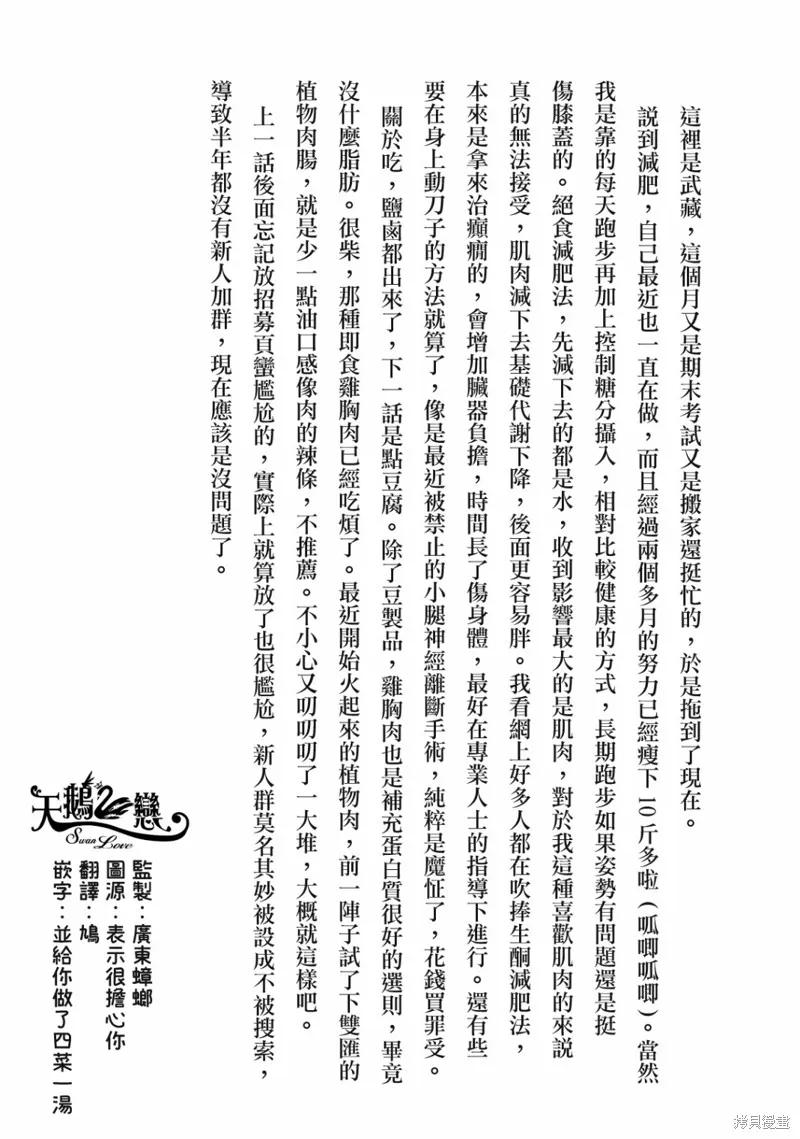 這裡是武藏，這個月又是期末考試又是搬家還挺忙的，於是拖到了現在。
說到減肥，自己最近也一直在做，而且經過兩個多月的努力已經瘦下10斤多啦（呱唧呱唧）。當然
我是靠的每天跑步再加上控制糖分攝入，相對比較健康的方式，長期跑步如果姿勢有問題還是挺
傷膝蓋的。絕食減肥法，先減下去的都是水，收到影響最大的是肌肉，對於我這種喜歡肌肉的來說
真的無法接受，肌肉減下去基礎代謝下降，後面更容易胖。我看網上好多人都在吹捧生酮減肥法，
本來是拿來治癲癇的，會增加臟器負擔，時間長了傷身體，最好在專業人士的指導下進行。還有些
要在身上動刀子的方法就算了，像是最近被禁止的小腿神經離斷手術，純粹是魔怔了，花錢買罪受。
關於吃，鹽鹵都出來了，下一話是點豆腐。除了豆製品，雞胸肉也是補充蛋白質很好的選則，畢竟
沒什麼脂肪。很柴，那種即食雞胸肉已經吃煩了。最近開始火起來的植物肉，前一陣子試了下雙匯的
植物肉腸，就是少一點油口感像肉的辣條，不推薦。不小心又叨叨叨了一大堆，大概就這樣吧。
上一話後面忘記放招募頁蠻尷尬的，實際上就算放了也很尷尬，新人群莫名其妙被設成不被搜索，
導致半年都沒有新人加群，現在應該是沒問題了。
天鵝之戀
Swan Love
監製：廣東蟑螂
圖源：表示很擔心你
翻譯：鳩
嵌字：並給你做了四菜一湯
拷貝漫畫